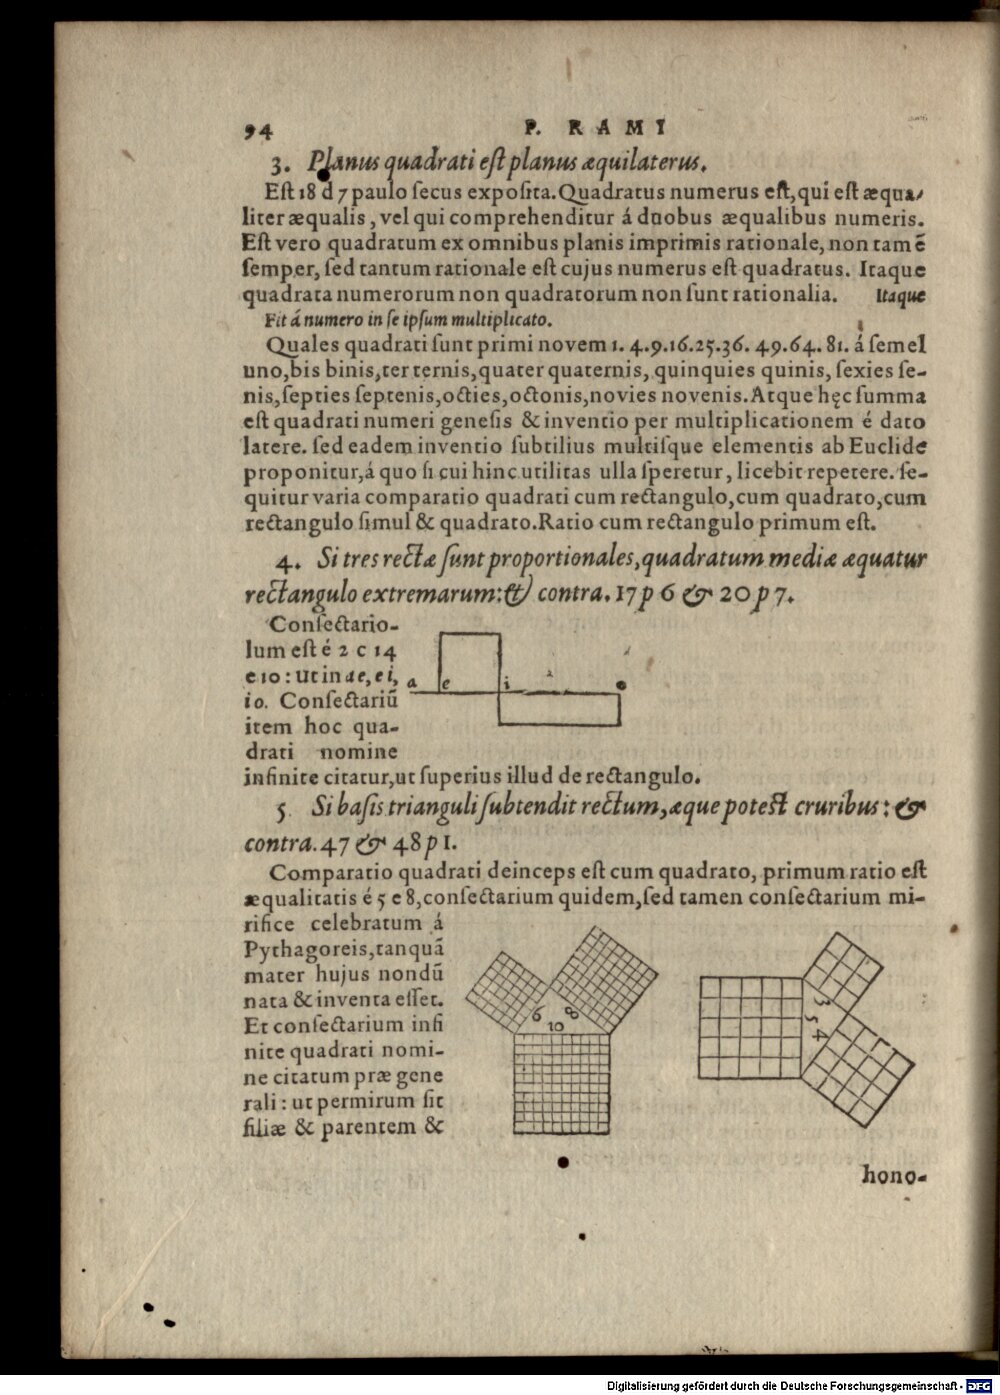 94 P. RAMI
3. Planus quadrati est planus æquilaterus.
Est 18 d 7 paulo secus exposita. Quadratus numerus est, qui est æqua-
liter æqualis, vel qui comprehenditur á duobus æqualibus numeris.
Est vero quadratum ex omnibus planis imprimis rationale, non tamē
semper, sed tantum rationale est cujus numerus est quadratus. Itaque
quadrata numerorum non quadratorum non sunt rationalia. Itaque
Fit á numero in se ipsum multiplicato.
Quales quadrati sunt primi novem 1. 4. 9. 16. 25. 36. 49. 64. 81. á semel
uno, bis binis, ter ternis, quater quaternis, quinquies quinis, sexies se-
nis, septies septenis, octies, octonis, novies novenis. Atque hęc summa
est quadrati numeri genesis & inventio per multiplicationem é dato
latere. sed eadem inventio subtilius multisque elementis ab Euclide
proponitur, á quo si cui hinc utilitas ulla speretur, licebit repetere. se-
quitur varia comparatio quadrati cum rectangulo, cum quadrato, cum
rectangulo simul & quadrato. Ratio cum rectangulo primum est.
4. Si tres rectæ sunt proportionales, quadratum mediæ æquatur
rectangulo extremarum: & contra. 17 p 6 & 20 p 7.
Consectario-
lum est é 2 c 14
e 10: ut in ae, ei,
io. Consectariū
item hoc qua-
drati nomine
a e i o
infinite citatur, ut superius illud de rectangulo.
5 Si basis trianguli subtendit rectum, æque potest cruribus: &
contra. 47 & 48 p 1.
Comparatio quadrati deinceps est cum quadrato, primum ratio est
æqualitatis é 5 e 8, consectarium quidem, sed tamen consectarium mi-
rifice celebratum á
Pythagoreis, tanquā
mater hujus nondū
nata & inventa esset.
Et consectarium infi
nite quadrati nomi-
ne citatum præ gene
rali: ut permirum sit
filiæ & parentem &
6 8
10
3
5 4
hono-
Digitalisierung gefördert durch die Deutsche Forschungsgemeinschaft - DFG